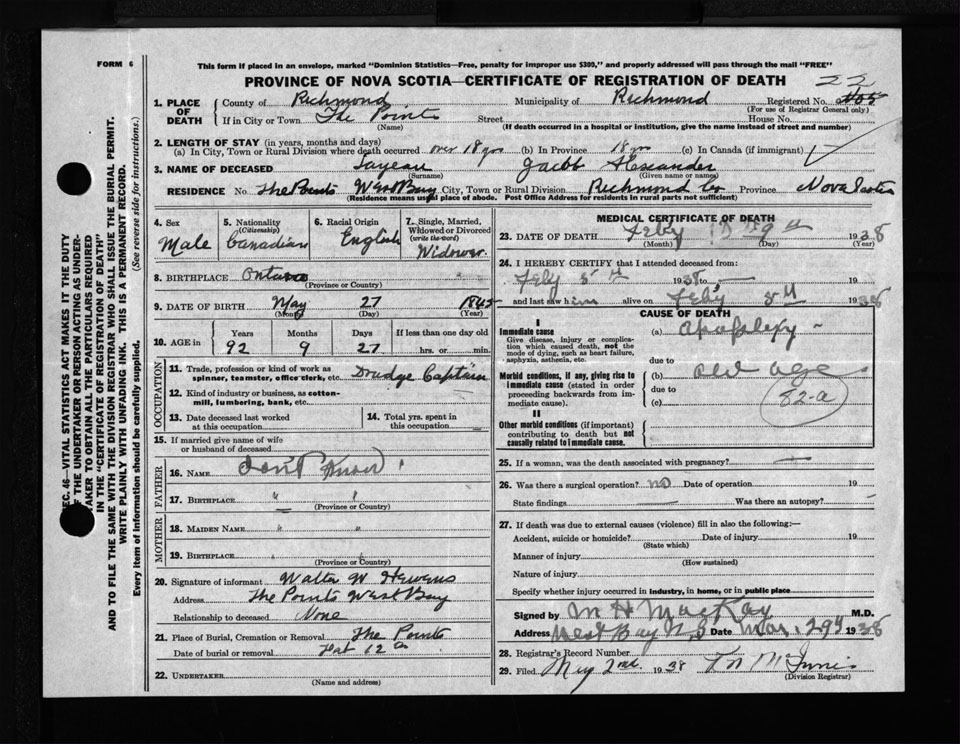 FORM 6
This form if placed in an envelope, marked "Dominion Statistics—Free, penalty for improper use $300," and properly addressed will pass through the mail "FREE"
PROVINCE OF NOVA SCOTIA—CERTIFICATE OF REGISTRATION OF DEATH
1. PLACE OF DEATH County of Richmond Municipality of Richmond Registered No.
(For use of Registrar General only)
If in City or Town The Points Street House No.
(Name) (If death occurred in a hospital or institution, give the name instead of street and number)
2. LENGTH OF STAY (in years, months and days)
(a) In City, Town or Rural Division where death occurred over 18 yrs (b) In Province 18 yrs (c) In Canada (if immigrant)
3. NAME OF DECEASED Jacob Alexander
(Surname) (Given name or names)
RESIDENCE No. The Points West Bay City, Town or Rural Division Richmond Co Province Nova Scotia
(Residence means usual place of abode. Post Office Address for residents in rural parts not sufficient)
4. Sex Male
5. Nationality (Citizenship) Canadian
6. Racial Origin English
7. Single, Married, Widowed or Divorced (write the word) Widower.
8. BIRTHPLACE Ontario
(Province or Country)
9. DATE OF BIRTH May 27 1845
(Month) (Day) (Year)
10. AGE in Years Months Days If less than one day old
92 9 27 hrs. or min.
OCCUPATION
11. Trade, profession or kind of work as spinner, teamster, office clerk, etc. Drudge Captain
12. Kind of industry or business, as cotton-mill, lumbering, bank, etc.
13. Date deceased last worked at this occupation
14. Total yrs. spent in this occupation
15. If married give name of wife or husband of deceased
FATHER
16. NAME Don't Know
17. BIRTHPLACE " "
(Province or Country)
MOTHER
18. MAIDEN NAME " "
19. BIRTHPLACE " "
(Province or Country)
20. Signature of informant Walter W Hewens
Address The Points West Bay
Relationship to deceased None
21. Place of Burial, Cremation or Removal The Points
Date of burial or removal
22. UNDERTAKER
(Name and address)
MEDICAL CERTIFICATE OF DEATH
23. DATE OF DEATH Feby 9th 1938
(Month) (Day) (Year)
24. I HEREBY CERTIFY that I attended deceased from:
Feby 5th 1938, to 19
and last saw him alive on Feby 5th 1938
CAUSE OF DEATH
I
Immediate cause
Give disease, injury or complication which caused death, not the mode of dying, such as heart failure, asphyxia, asthenia, etc.
(a) apoplexy
due to
Morbid conditions, if any, giving rise to immediate cause (stated in order proceeding backwards from immediate cause).
(b) old age
due to
(c)
82-a
II
Other morbid conditions (if important) contributing to death but not causally related to immediate cause.
25. If a woman, was the death associated with pregnancy?
26. Was there a surgical operation? no Date of operation 19
State findings Was there an autopsy?
27. If death was due to external causes (violence) fill in also the following:—
Accident, suicide or homicide? Date of injury 19
(State which)
Manner of injury
(How sustained)
Nature of injury
Specify whether injury occurred in industry, in home, or in public place
Signed by M H MacKay M.D.
Address West Bay N.S Date Mar. 29th 1938
28. Registrar's Record Number
29. Filed May 2nd. 1938 McInnis
(Division Registrar)
EC. 46—VITAL STATISTICS ACT MAKES IT THE DUTY
F THE UNDERTAKER OR PERSON ACTING AS UNDER-
TAKER TO OBTAIN ALL THE PARTICULARS REQUIRED
IN THE "CERTIFICATE OF REGISTRATION OF DEATH"
AND TO FILE THE SAME WITH THE DIVISION REGISTRAR WHO SHALL ISSUE THE BURIAL PERMIT.
WRITE PLAINLY WITH UNFADING INK. THIS IS A PERMANENT RECORD.
Every item of information should be carefully supplied. (See reverse side for instructions.)